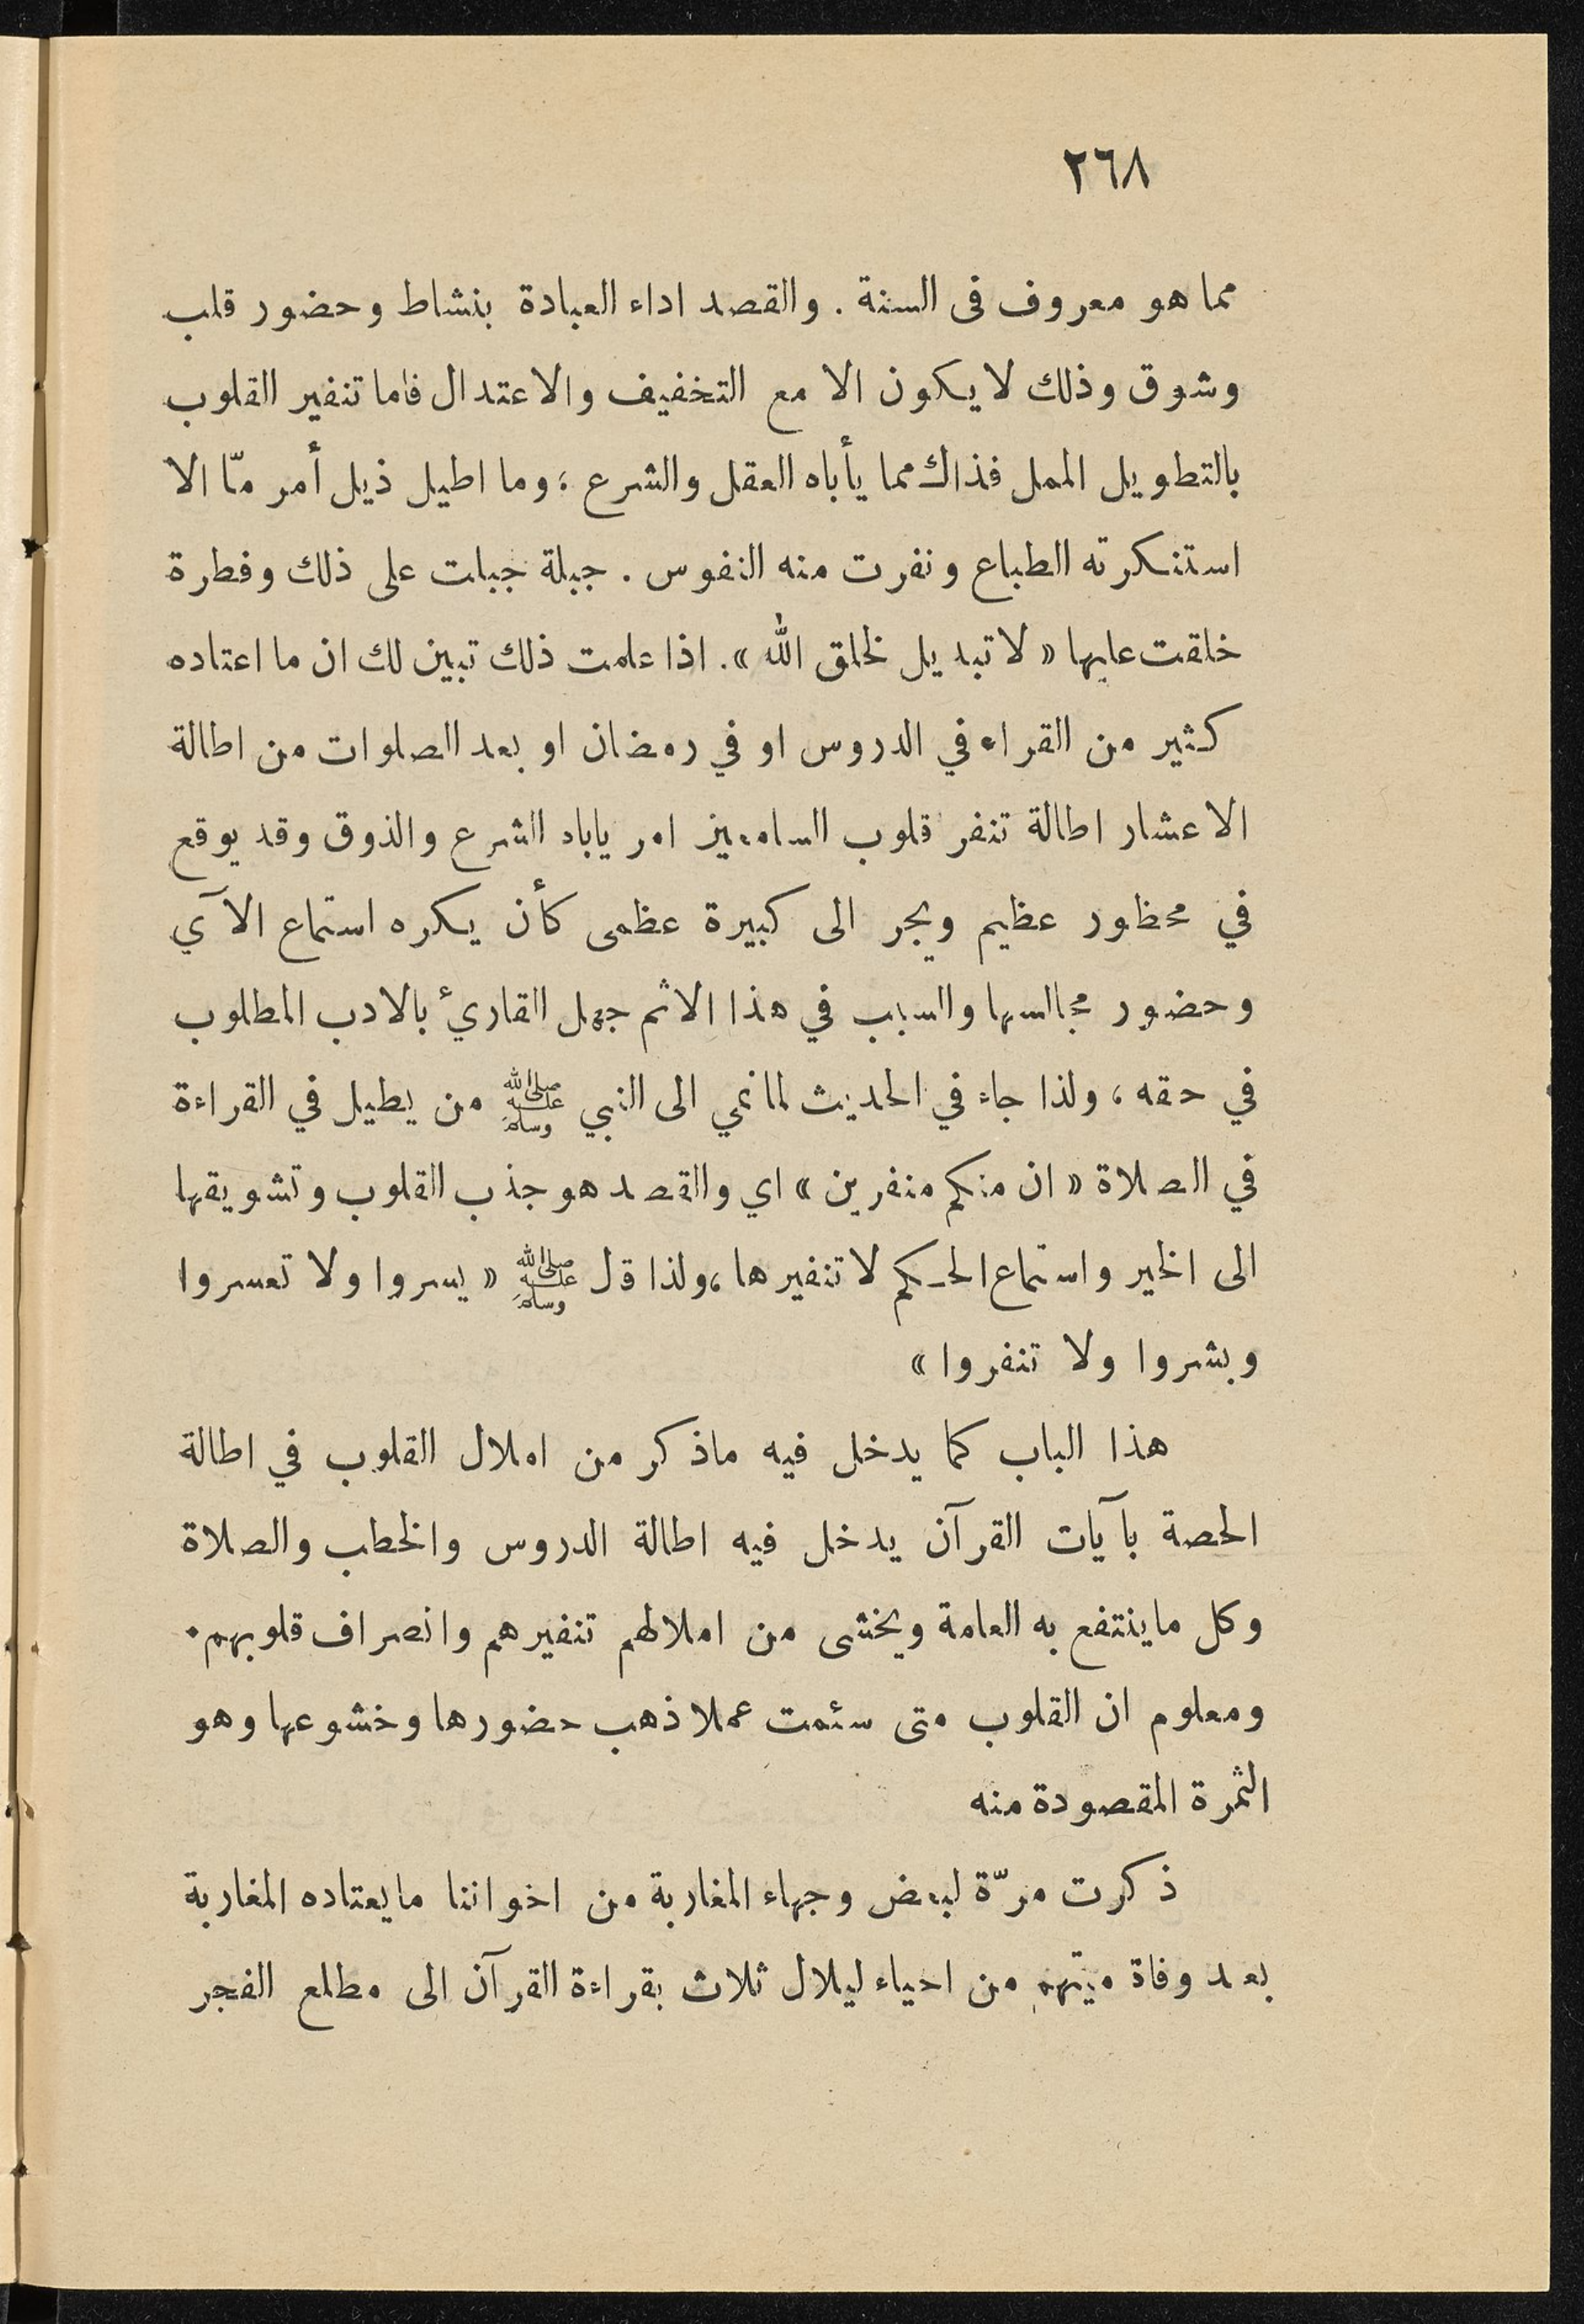 ٢٦٨
مما هو معروف فى السنة . والقصد اداء العبادة بنشاط وحضور قلب
وشوق وذلك لا يكون الا مع التخفيف والاعتدال فاما تنفير القلوب
بالتطويل الممل فذاك مما يأباه العقل والشرع ؛ وما اطيل ذيل أمر مّا الا
استنكرته الطباع ونفرت منه النفوس . جبلة جبلت على ذلك وفطرة
خلقت عليها « لا تبديل لخلق الله » . اذا علمت ذلك تبين لك ان ما اعتاده
كثير من القراء في الدروس او في رمضان او بعد الصلوات من اطالة
الاعشار اطالة تنفر قلوب السامعين امر ياباه الشرع والذوق وقد يوقع
في محظور عظيم ويجر الى كبيرة عظمى كأن يكره استماع الآي
وحضور مجالسها والسبب في هذا الاثم جهل القارئ بالادب المطلوب
في حقه ، ولذا جاء في الحديث لما نمي الى النبي ﷺ من يطيل في القراءة
في الصلاة « ان منكم منفرين » اي والقصد هو جذب القلوب وتشويقها
الى الخير واستماع الحكم لا تنفيرها ، ولذا قل ﷺ « يسروا ولا تعسروا
وبشروا ولا تنفروا »
هذا الباب كما يدخل فيه ماذكر من املال القلوب في اطالة
الحصة بآيات القرآن يدخل فيه اطالة الدروس والخطب والصلاة
وكل ماينتفع به العامة ويخشى من املالهم تنفيرهم وانصراف قلوبهم .
ومعلوم ان القلوب متى سئمت عملا ذهب حضورها وخشوعها وهو
الثمرة المقصودة منه
ذكرت مرّة لبعض وجهاء المغاربة من اخواننا مايعتاده المغاربة
بعد وفاة ميتهم من احياء ليلال ثلاث بقراءة القرآن الى مطلع الفجر